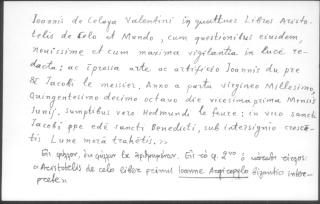 Ioannis de Celaya Valentini in quattuor Libros Aristo-
telis de Celo et Mundo, cum questionibus eiusdem,
nouissime et cum maxima vigilantia in lucē re-
dacta: ac īpressa arte ac artificio Ioannis du pre
& Jacobi le messier, Anno a partu virgineo Millesimo,
Quingentesimo decimo octavo die vicesima prima Mensis
Iunij. sumptibus vero Hedmundi le feure: in vico sancti
Jacobi ppe edē sancti Benedicti, sub intersignio crescē-
tis Lune morā trahētis. >>
Εἰς φύλλον, ἐν φύλλον
Aristotelis de celo liber primus Ioanne Argiropylo bizantio inter-
prete